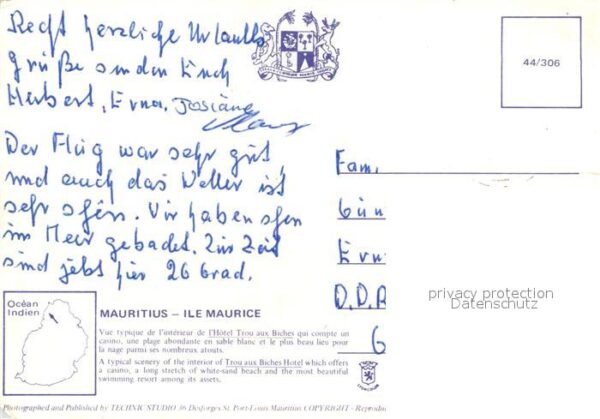 Recht herzliche Urlaubs
Grüße senden Euch
Herbert, Erna, Josiane
Der Flug war sehr gut,
und auch das Wetter ist
sehr schön. Wir haben schon
im Meer gebadet. Zur Zeit
sind jetzt hier 26 Grad.
44/306
Fam.
Gün
Erna
D.D.R
6
privacy protection
Datenschutz
Océan
Indien
MAURITIUS – ILE MAURICE
Vue typique de l'intérieur de l'Hôtel Trou aux Biches qui compte un
casino, une plage abondante en sable blanc et le plus beau lieu pour
la nage parmi ses nombreux atouts.
A typical scenery of the interior of Trou aux Biches Hotel which offers
a casino, a long stretch of white-sand beach and the most beautiful
swimming resort among its assets.
Photographed and Published by TECHNIC STUDIO 36 Desforges St. Port-Louis Mauritius COPYRIGHT - Reprodu